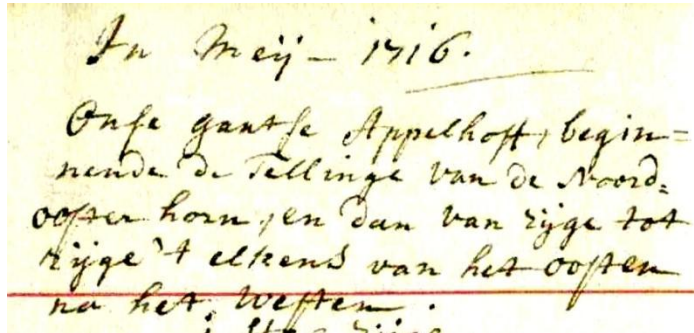 In Meij - 1716.
Onse gantse Appelhoff, begin=
nende de Tellinge van de Noord=
ooster horn, en dan van rijge tot
rijge 't elkens van het oosten
na het Westen.